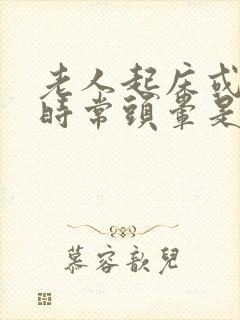 老人起床或
時常頭暈是
慕容歆兒